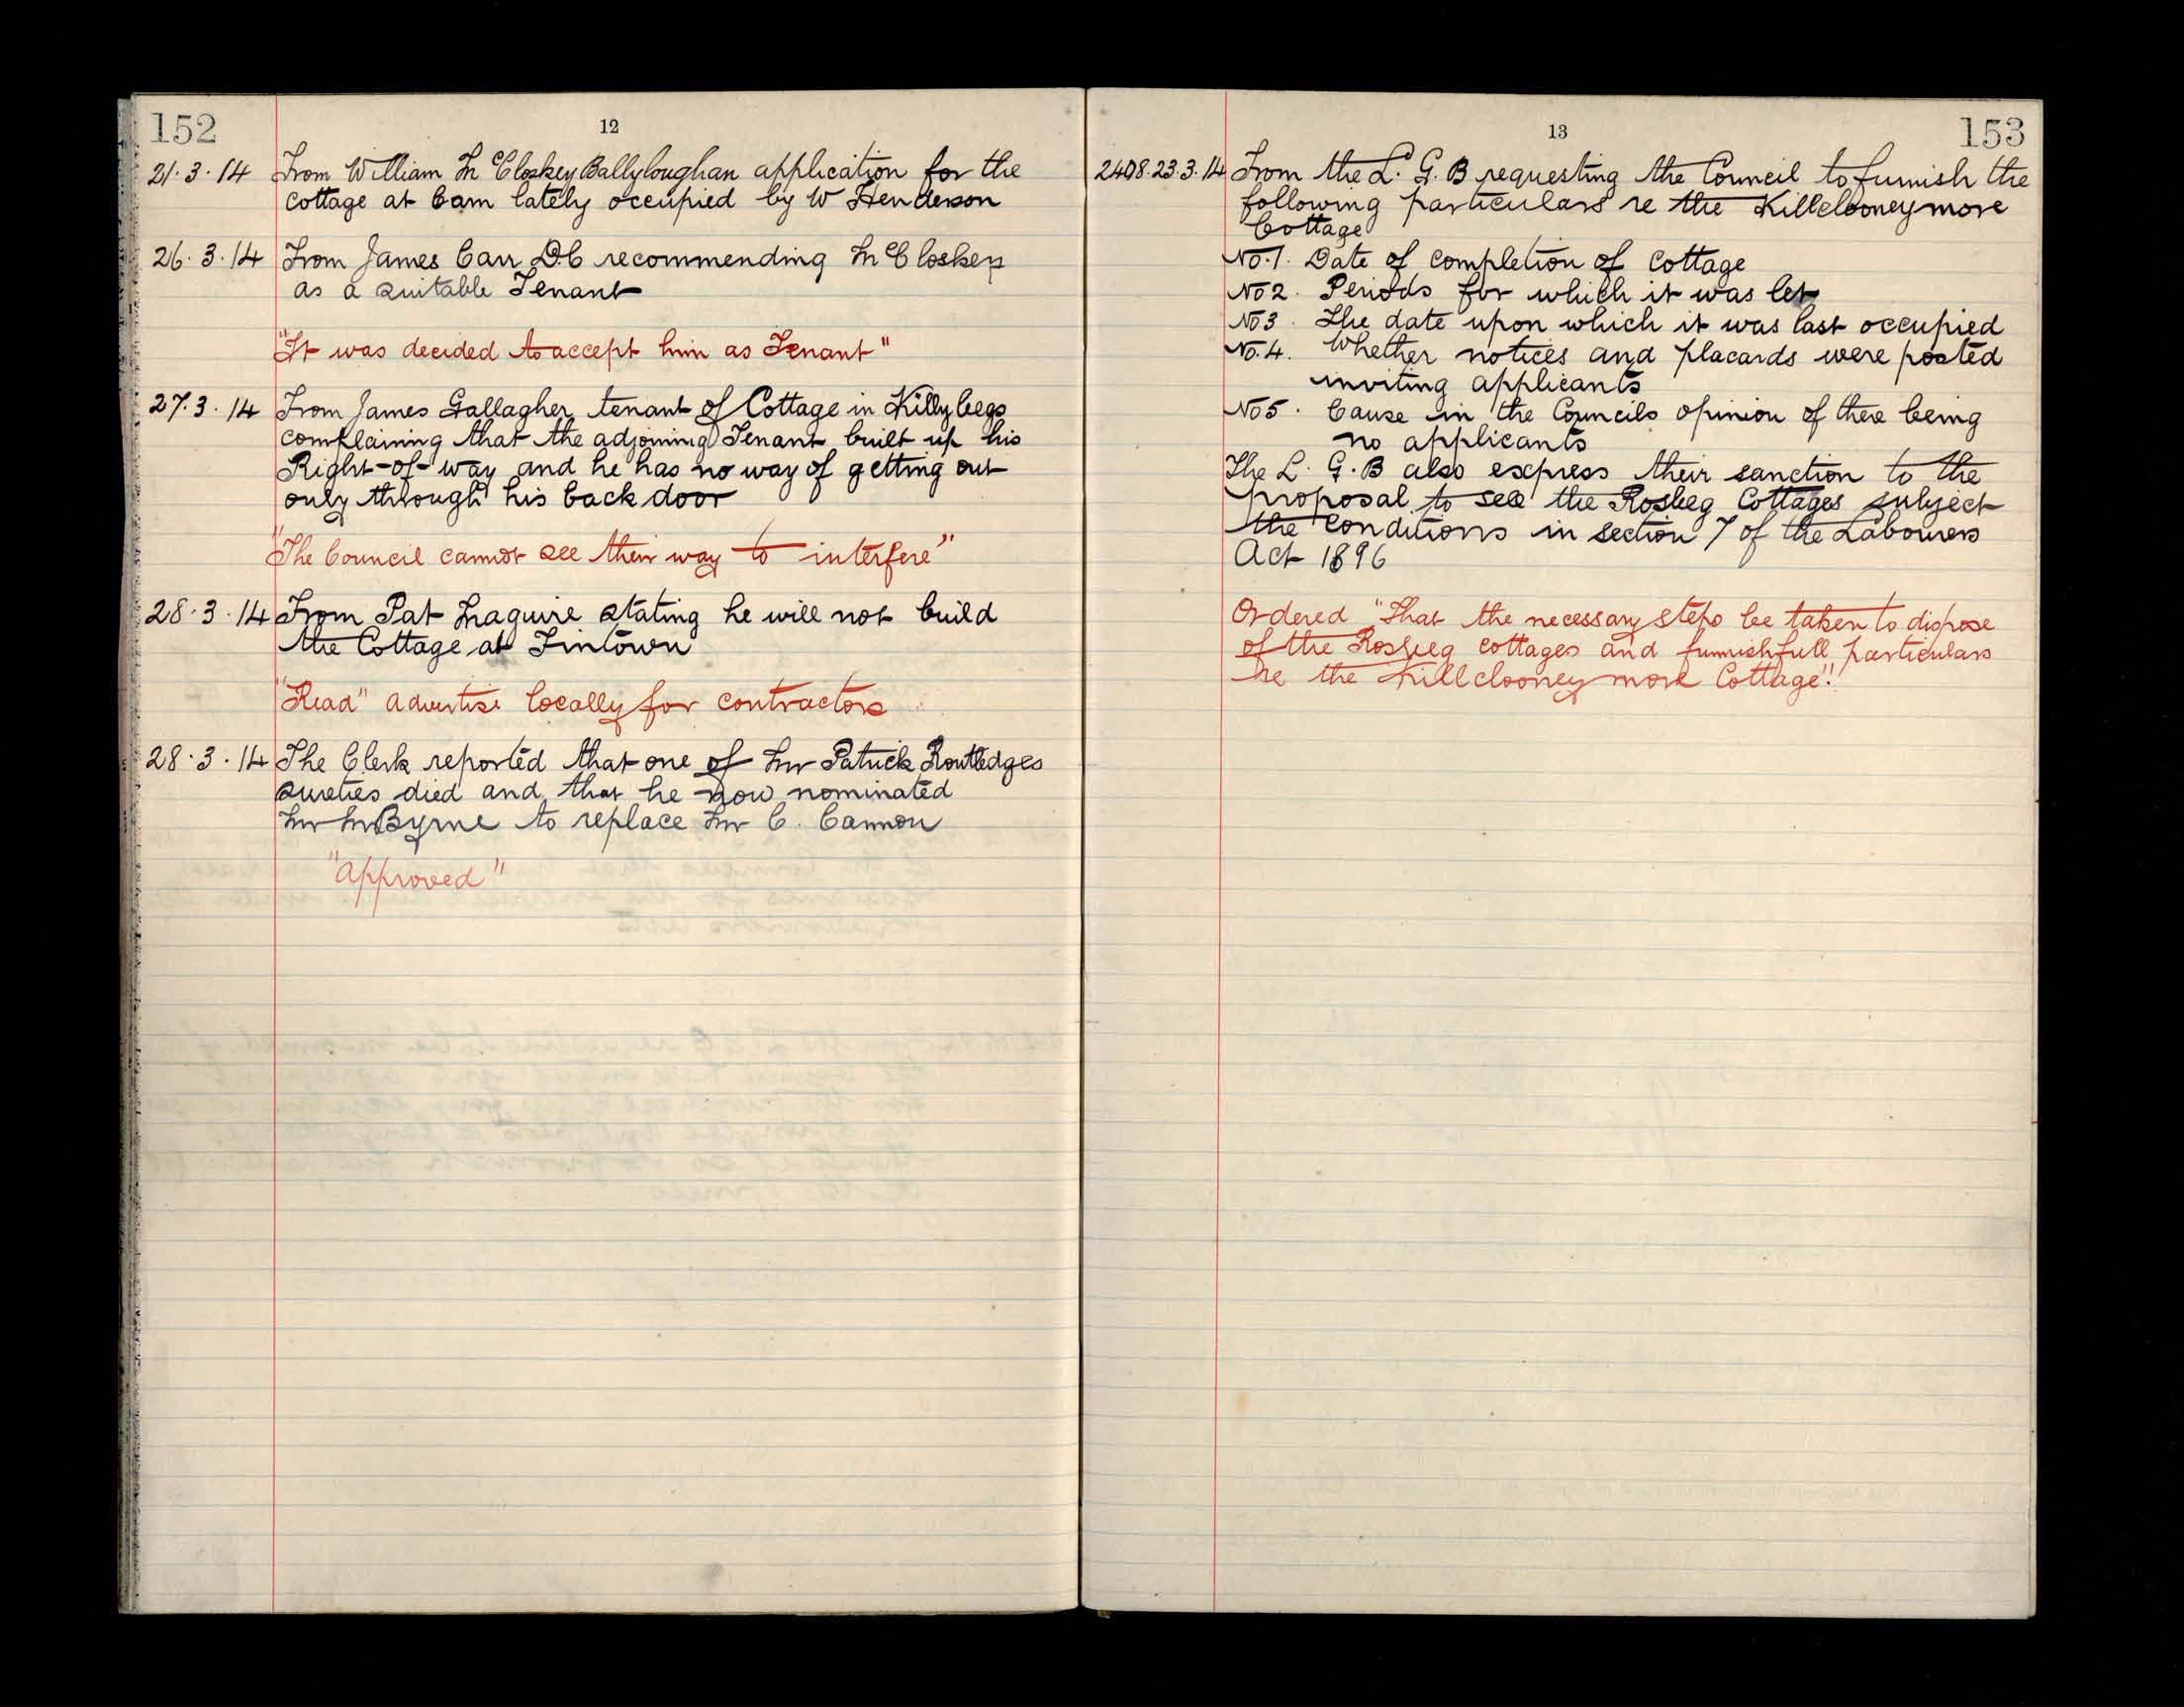 152
12
21·3·14 From William McCloskey Ballyloughan application for the
Cottage at Cam lately occupied by W Henderson
26·3·14 From James Carr D.C recommending McCloskey
as a suitable Tenant
"It was decided to accept him as Tenant"
27·3·14 From James Gallagher tenant of Cottage in Killybegs
complaining that the adjoining Tenant built up his
Right-of-way and he has no way of getting out
only through his back door
"The Council cannot see their way to interfere"
28·3·14 From Pat Maguire stating he will not build
the Cottage at Fintown
"Read" advertise locally for contractors
28·3·14 The Clerk reported that one of Mr Patrick Routledges
sureties died and that he now nominated
Mr McByrne to replace Mr C. Cannon
"approved"
13
153
2408.23.3.14 From the L. G. B requesting the Council to furnish the
following particulars re the Killclooneymore
Cottage
No.1. Date of completion of Cottage
No 2. Periods for which it was let
No 3. The date upon which it was last occupied
No.4. Whether notices and placards were posted
inviting applicants
No 5. Cause in the Councils opinion of there being
no applicants
The L. G. B also express their sanction to the
proposal to sell the Rosbeg Cottages subject
the conditions in section 7 of the Labourers
Act 1896
Ordered "That the necessary steps be taken to dispose
of the Rosbeg cottages and furnish full particulars
re the Killclooney more Cottage."